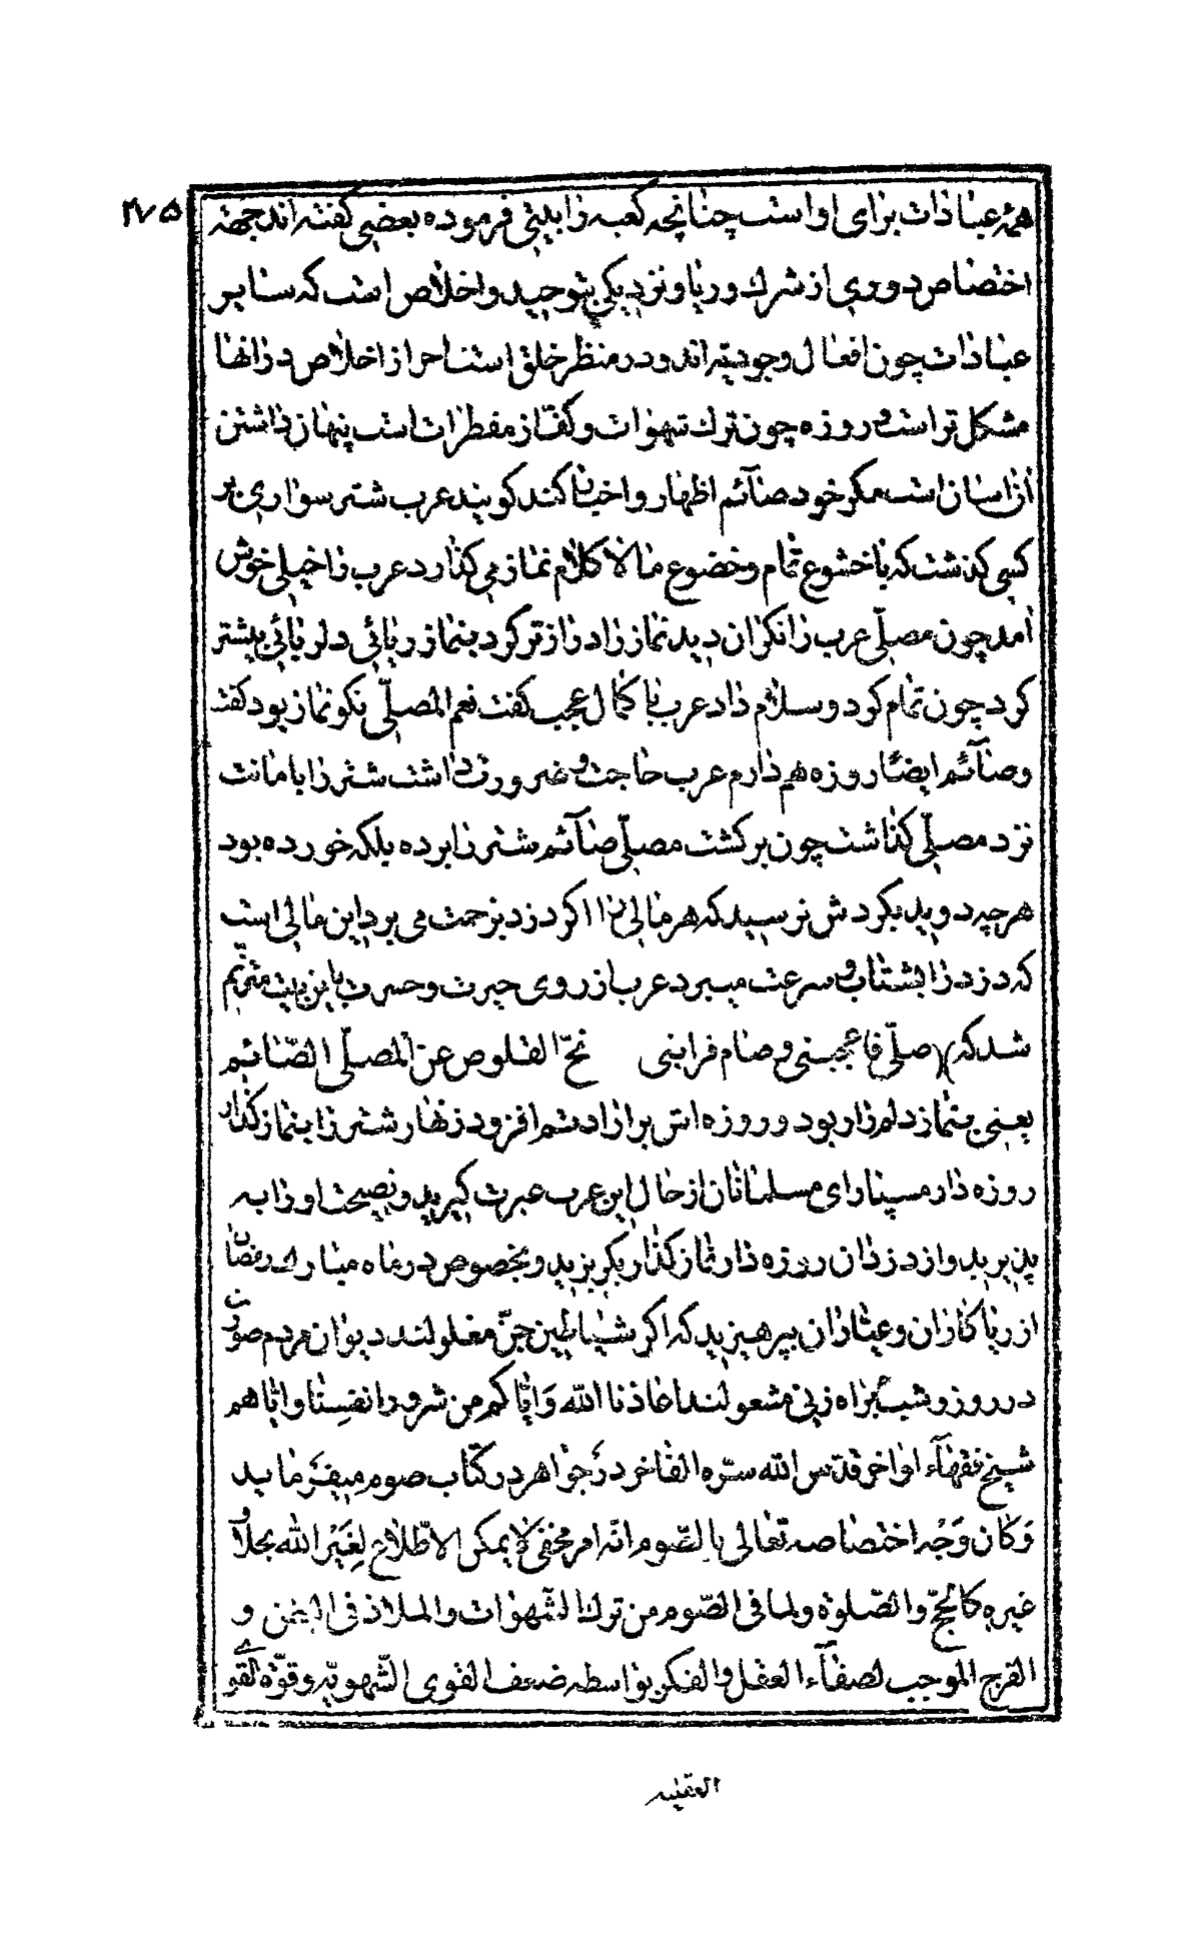 ۲۷۵
همهٔ عبادات برای او است چنانچه کعبه را بیتی فرموده بعضی گفته‌اند جههٔ
اختصاص دوری از شرک و ریا و نزدیکی بتوحید و اخلاص است که سایر
عبادات چون افعال وجودیّه‌اند و در منظر خلق است احراز اخلاص در انها
مشکل تر است و روزه چون ترک شهوات و کفّ از مفطرات است پنهان داشتن
ان اسان است مکر خود صآئم اظهار و اخبار کند کویند عرب شتر سواری بر
کسی کذشت که با خشوع تمام و خضوع مالا کلام نماز می کذارد عرب را خیلی خوش
امد چون مصلّی عرب را نکران دید نماز را درازتر کرد بنماز ریائی دلربائی بیشتر
کرد چون تمام کرد و سلام داد عرب با کمال عجب کفت نعم المصلّی نکو نماز بود کفت
و صآئم ایضًا روزه هم دارم عرب حاجت و ضرورت داشت شتر را بامانت
نزد مصلّی کذاشت چون برکشت مصلّی صآئم شتر را برده بلکه خورده بود
هر چه دوید بکردش نرسید که هر مالی را اکر دزد بزحمت می برد این مالی است
که دزد را بشتاب و سرعت میبرد عرب از روی حیرت و حسرت باین بیت مترنّم
شد که (صلّی فاعجبنی و صام فرابنی نحّ القلوص عن المصلّی الصّائم
یعنی بنماز دلم زار بود و روزه اش بر ارادتم افزود زنهار شتر را بنماز کذار
روزه دار مسپار ای مسلمانان از حال این عرب عبرت کیرید و نصیحت او را به
پذیرید و از دزدان روزه دار نماز کذار بکریزید و بخصوص در ماه مبارک رمضان
از ریاکاران و عیّاران بپرهیزید که اکر شیاطین جنّ مغلولند دیوان مردم صورت
در روز و شب براه زنی مشعولند اعاذنا الله وَایّاکم من شرور انفسِنا و ایّاهم
شیخ فقهآء اواخر قدّس الله سرّه الفاخر در جواهر در کتاب صوم میفرماید
وَکان وَجْه اختصاصه تعالی بالصّوم انّه امر مخفیّ لا یمکن الاطّلاع لِغَیْرِ الله بخلاف
غیره کالحجّ و الصّلوة و لما فی الصّوم من ترک الشّهوات و الملاذ فی البطن و
الفرج الموجب لصفآء العقل و الفکر بواسطه ضعف القوی الشّهویّه و قوّة القوی
العقلیه